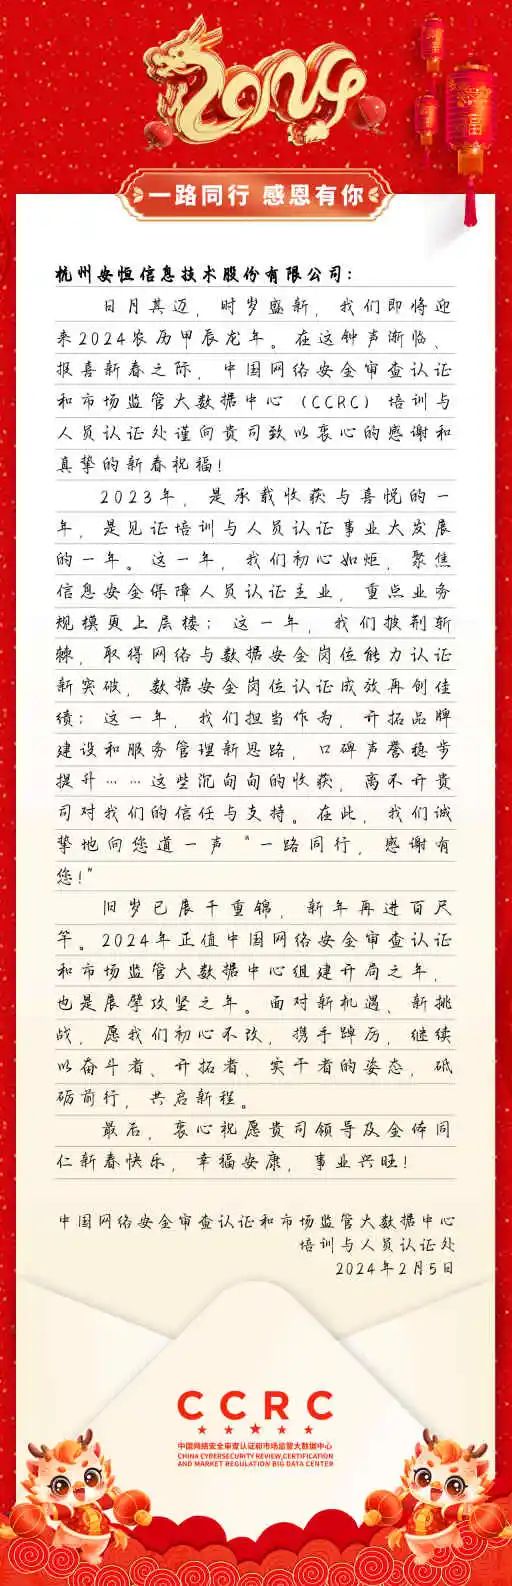 2024
福
一路同行 感恩有你
杭州安恒信息技术股份有限公司：
日月其迈，时岁盛新，我们即将迎
来2024农历甲辰龙年。在这钟声渐临、
报喜新春之际，中国网络安全审查认证
和市场监管大数据中心（CCRC）培训与
人员认证处谨向贵司致以衷心的感谢和
真挚的新春祝福！
2023年，是承载收获与喜悦的一
年，是见证培训与人员认证事业大发展
的一年。这一年，我们初心如炬，聚焦
信息安全保障人员认证主业，重点业务
规模更上层楼；这一年，我们披荆斩
棘，取得网络与数据安全岗位能力认证
新突破，数据安全岗位认证成效再创佳
绩；这一年，我们担当作为，开拓品牌
建设和服务管理新思路，口碑声誉稳步
提升……这些沉甸甸的收获，离不开贵
司对我们的信任与支持。在此，我们诚
挚地向您道一声“一路同行，感谢有
您！”
旧岁已展千重锦，新年再进百尺
竿。2024年正值中国网络安全审查认证
和市场监管大数据中心组建开局之年，
也是展擘攻坚之年。面对新机遇、新挑
战，愿我们初心不改，携手踔厉，继续
以奋斗者、开拓者、实干者的姿态，砥
砺前行，共启新程。
最后，衷心祝愿贵司领导及全体同
仁新春快乐，幸福安康，事业兴旺！
中国网络安全审查认证和市场监管大数据中心
培训与人员认证处
2024年2月5日
CCRC
中国网络安全审查认证和市场监管大数据中心
CHINA CYBERSECURITY REVIEW,CERTIFICATION
AND MARKET REGULATION BIG DATA CENTER